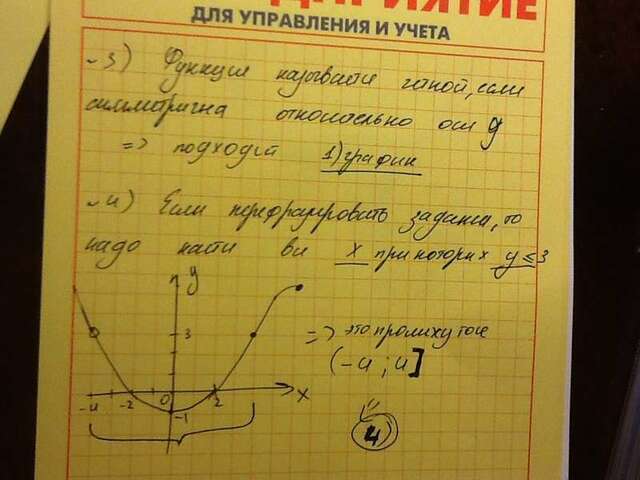 ПРИЯТИЕ
ДЛЯ УПРАВЛЕНИЯ И УЧЕТА
~3) Функция называется четной, если
симметрична относительно оси y
=> подходит 1) график
~4) Если перефразировать задание, то
надо найти все x при которых y ≤ 3
y
3
=> это промежуток
(-4; 4]
-4 -2 0 2 x
-1
4